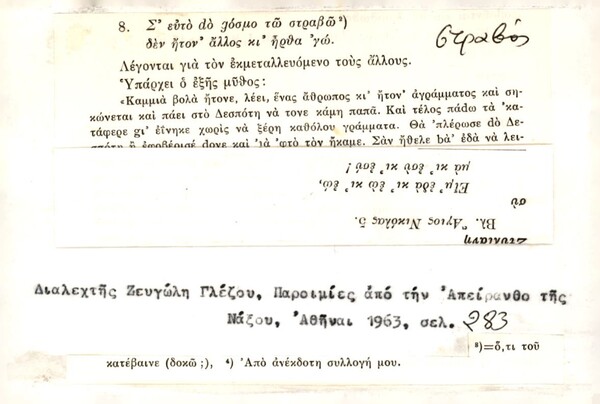 8. Σ' εὐτὸ dὸ ϙόσμο τῶ στραβῶ²)
δὲν ἤτον' ἄλλος κι' ἦρθα 'γώ.
στραβός
Λέγονται γιὰ τὸν ἐκμεταλλευόμενο τοὺς ἄλλους.
Ὑπάρχει ὁ ἑξῆς μῦθος:
«Καμμιὰ βολὰ ἤτονε, λέει, ἕνας ἄθρωπος κι' ἤτον' ἀγράμματος καὶ ση-
κώνεται καὶ πάει στὸ Δεσπότη νὰ τονε κάμη παπᾶ. Καὶ τέλος πάdω τὰ 'κα-
τάφερε gι' εἴνηκε χωρὶς νὰ ξέρη καθόλου γράμματα. Θὰ 'πλέρωσε dὸ Δε-
σπότη ἢ ἐφοβέρισέ dονε καὶ 'ιὰ 'φτὸ τὸν ἤκαμε. Σὰν ἤθελε bά' ἐδὰ νὰ λει-
μὰ κι' ἐσὺ κι' ἐσύ!
Εἶμ' ἐδὰ κι' ἐὼ κι' ἐώ,
οὐ
Βλ. Ἅγιος Νικόλας 5.
Στυλιανὴ
Διαλεχτῆς Ζευγώλη Γλέζου, Παροιμίες ἀπό τήν Ἀπείρανθο τῆς
Νάξου, Ἀθῆναι 1963, σελ. 283
³)=ὅ,τι τοῦ
κατέβαινε (δοκῶ;), ⁴) Ἀπὸ ἀνέκδοτη συλλογή μου.